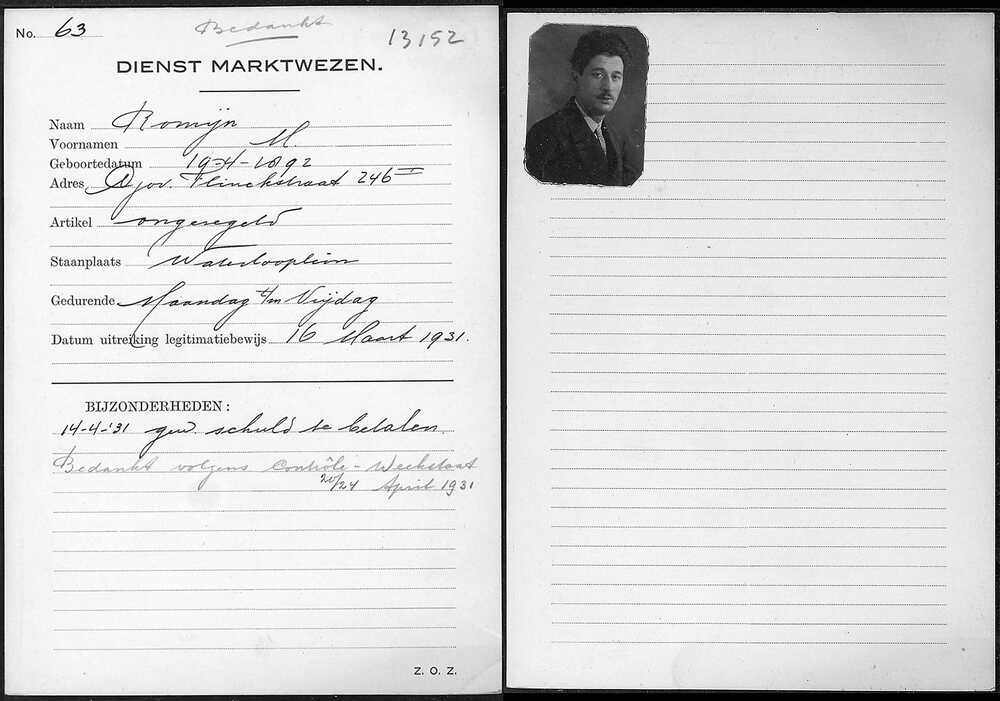 No. 63
Bedankt
13152
DIENST MARKTWEZEN.
Naam Romijn
Voornamen M.
Geboortedatum 19-4-1892
Adres Gov. Flinckstraat 246 II
Artikel ongeregeld
Staanplaats Waterlooplein
Gedurende Maandag t/m Vrijdag
Datum uitreiking legitimatiebewijs 16 Maart 1931.
BIJZONDERHEDEN:
14-4-'31 gew. schuld te betalen.
Bedankt volgens Contrôle-Weekstaat
20/24 April 1931
Z. O. Z.